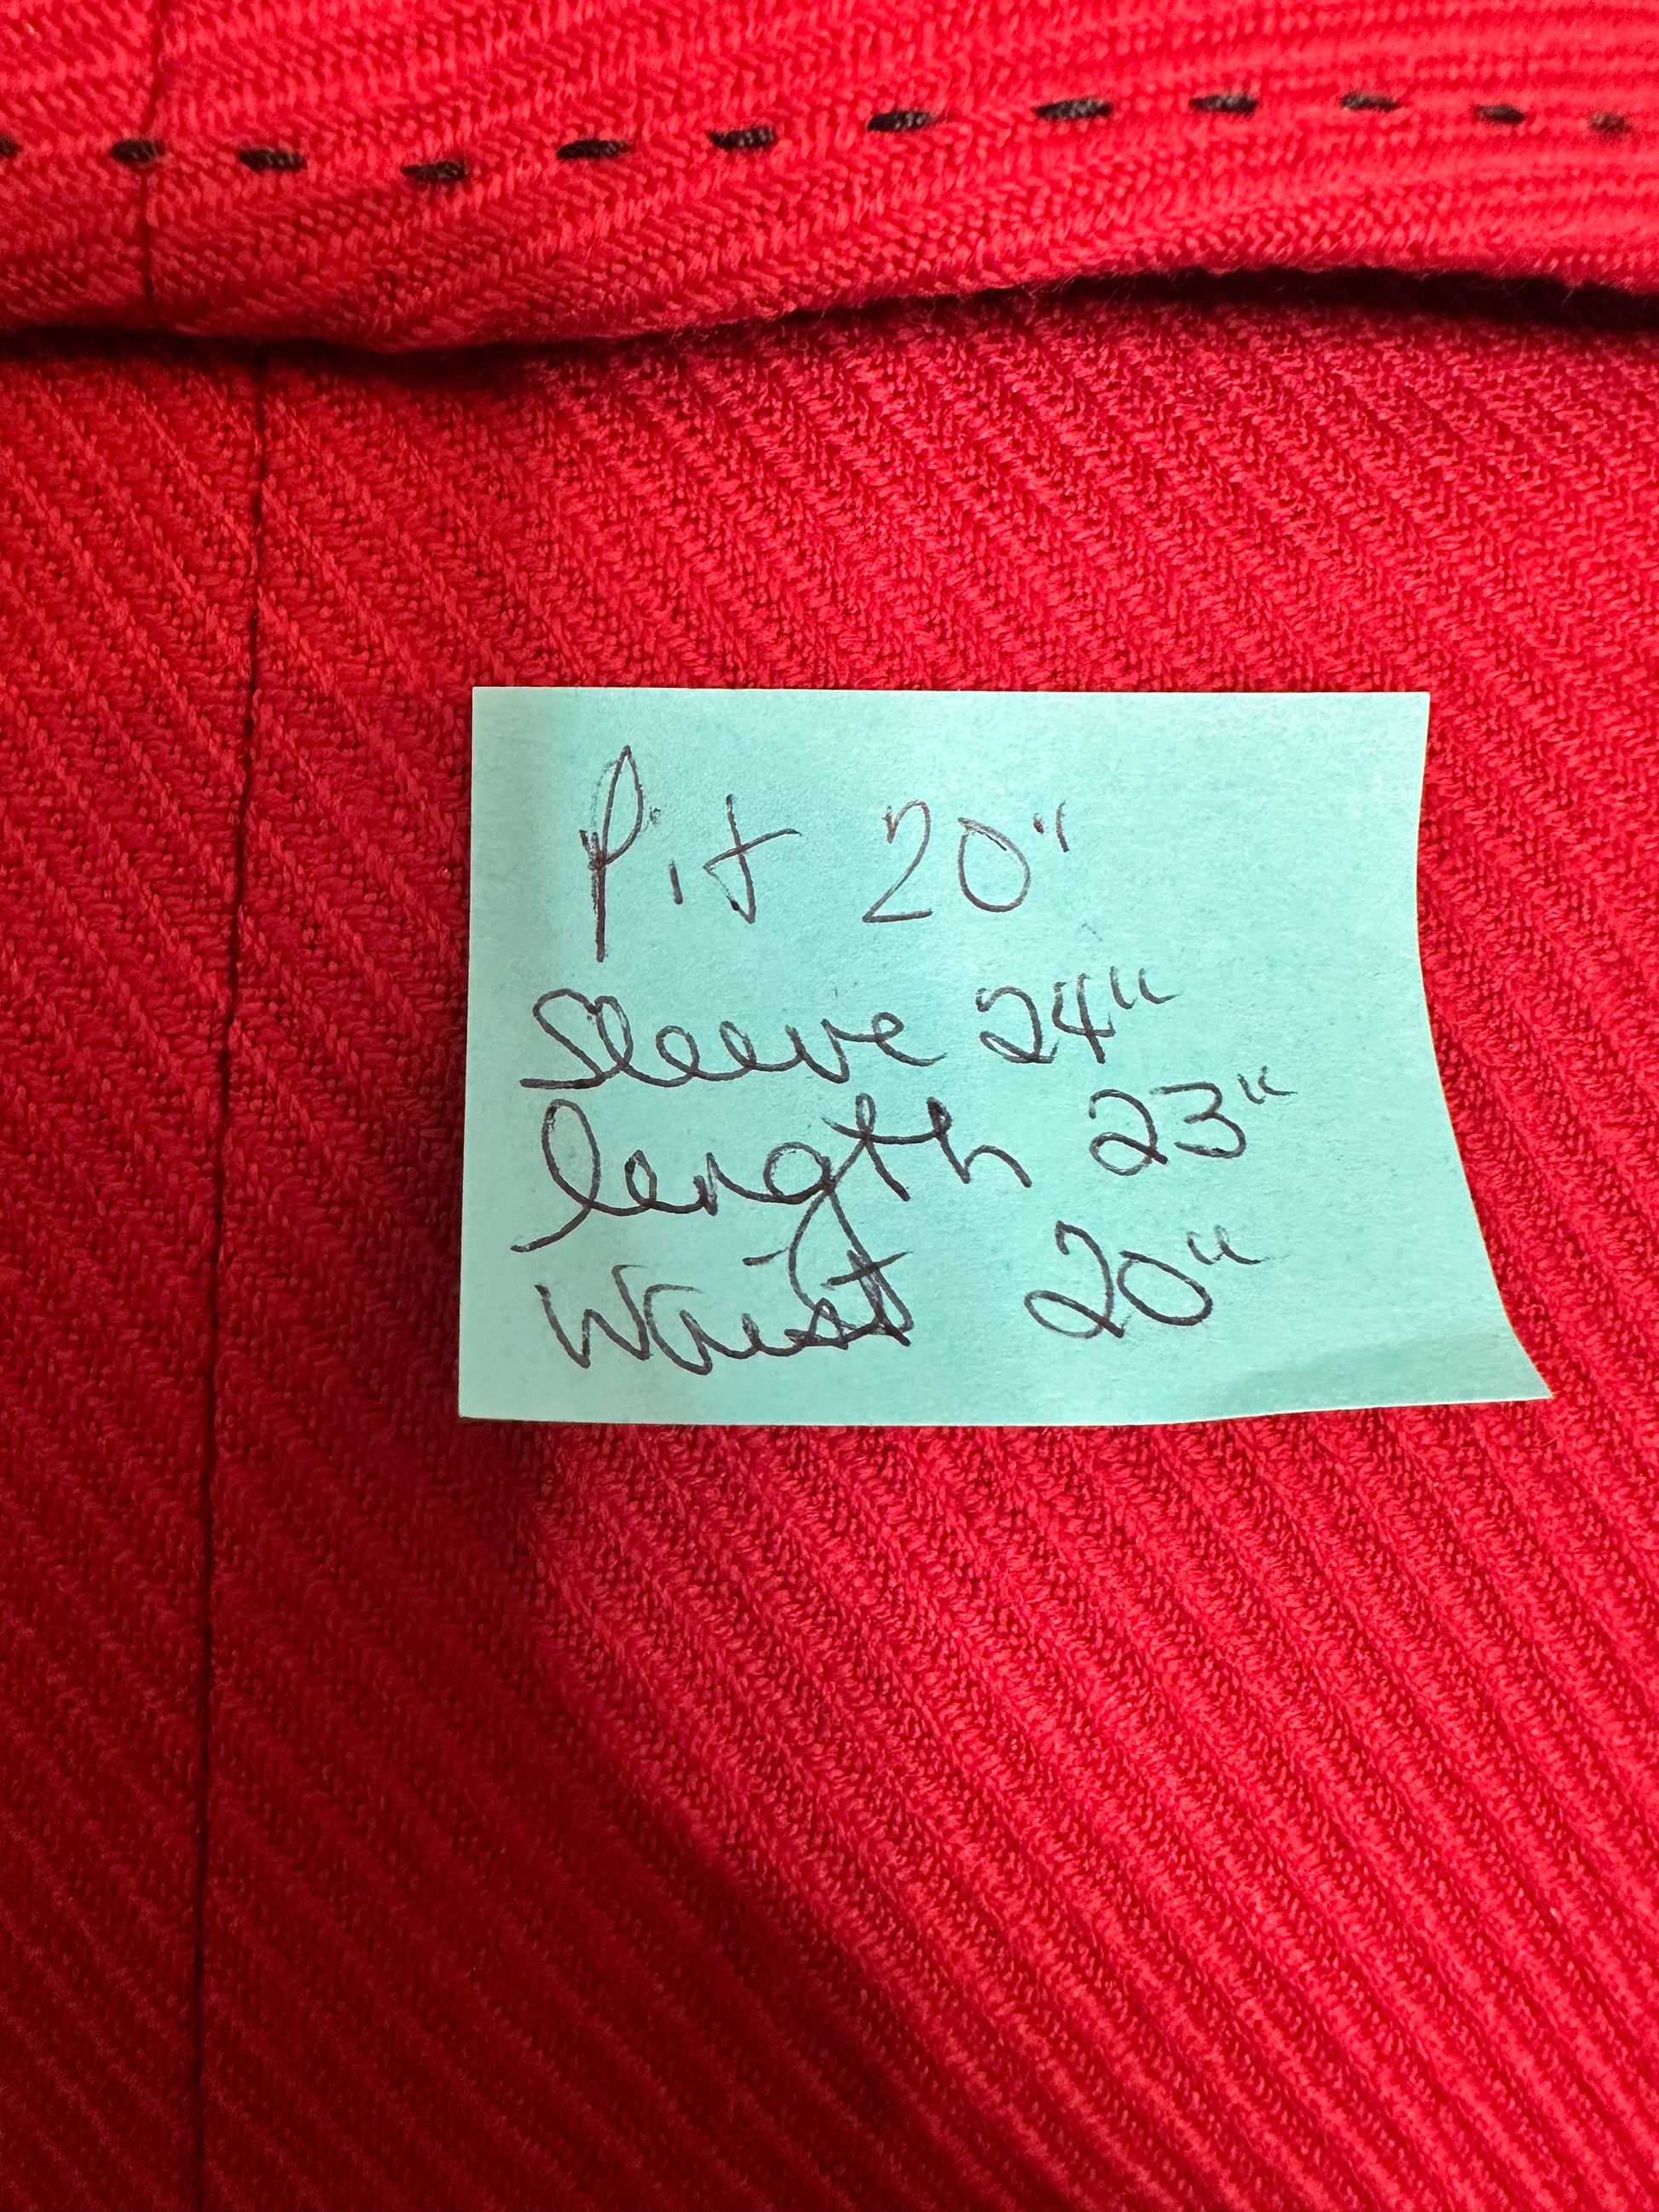 Pit 20"
Sleeve 24"
length 23"
Waist 20"